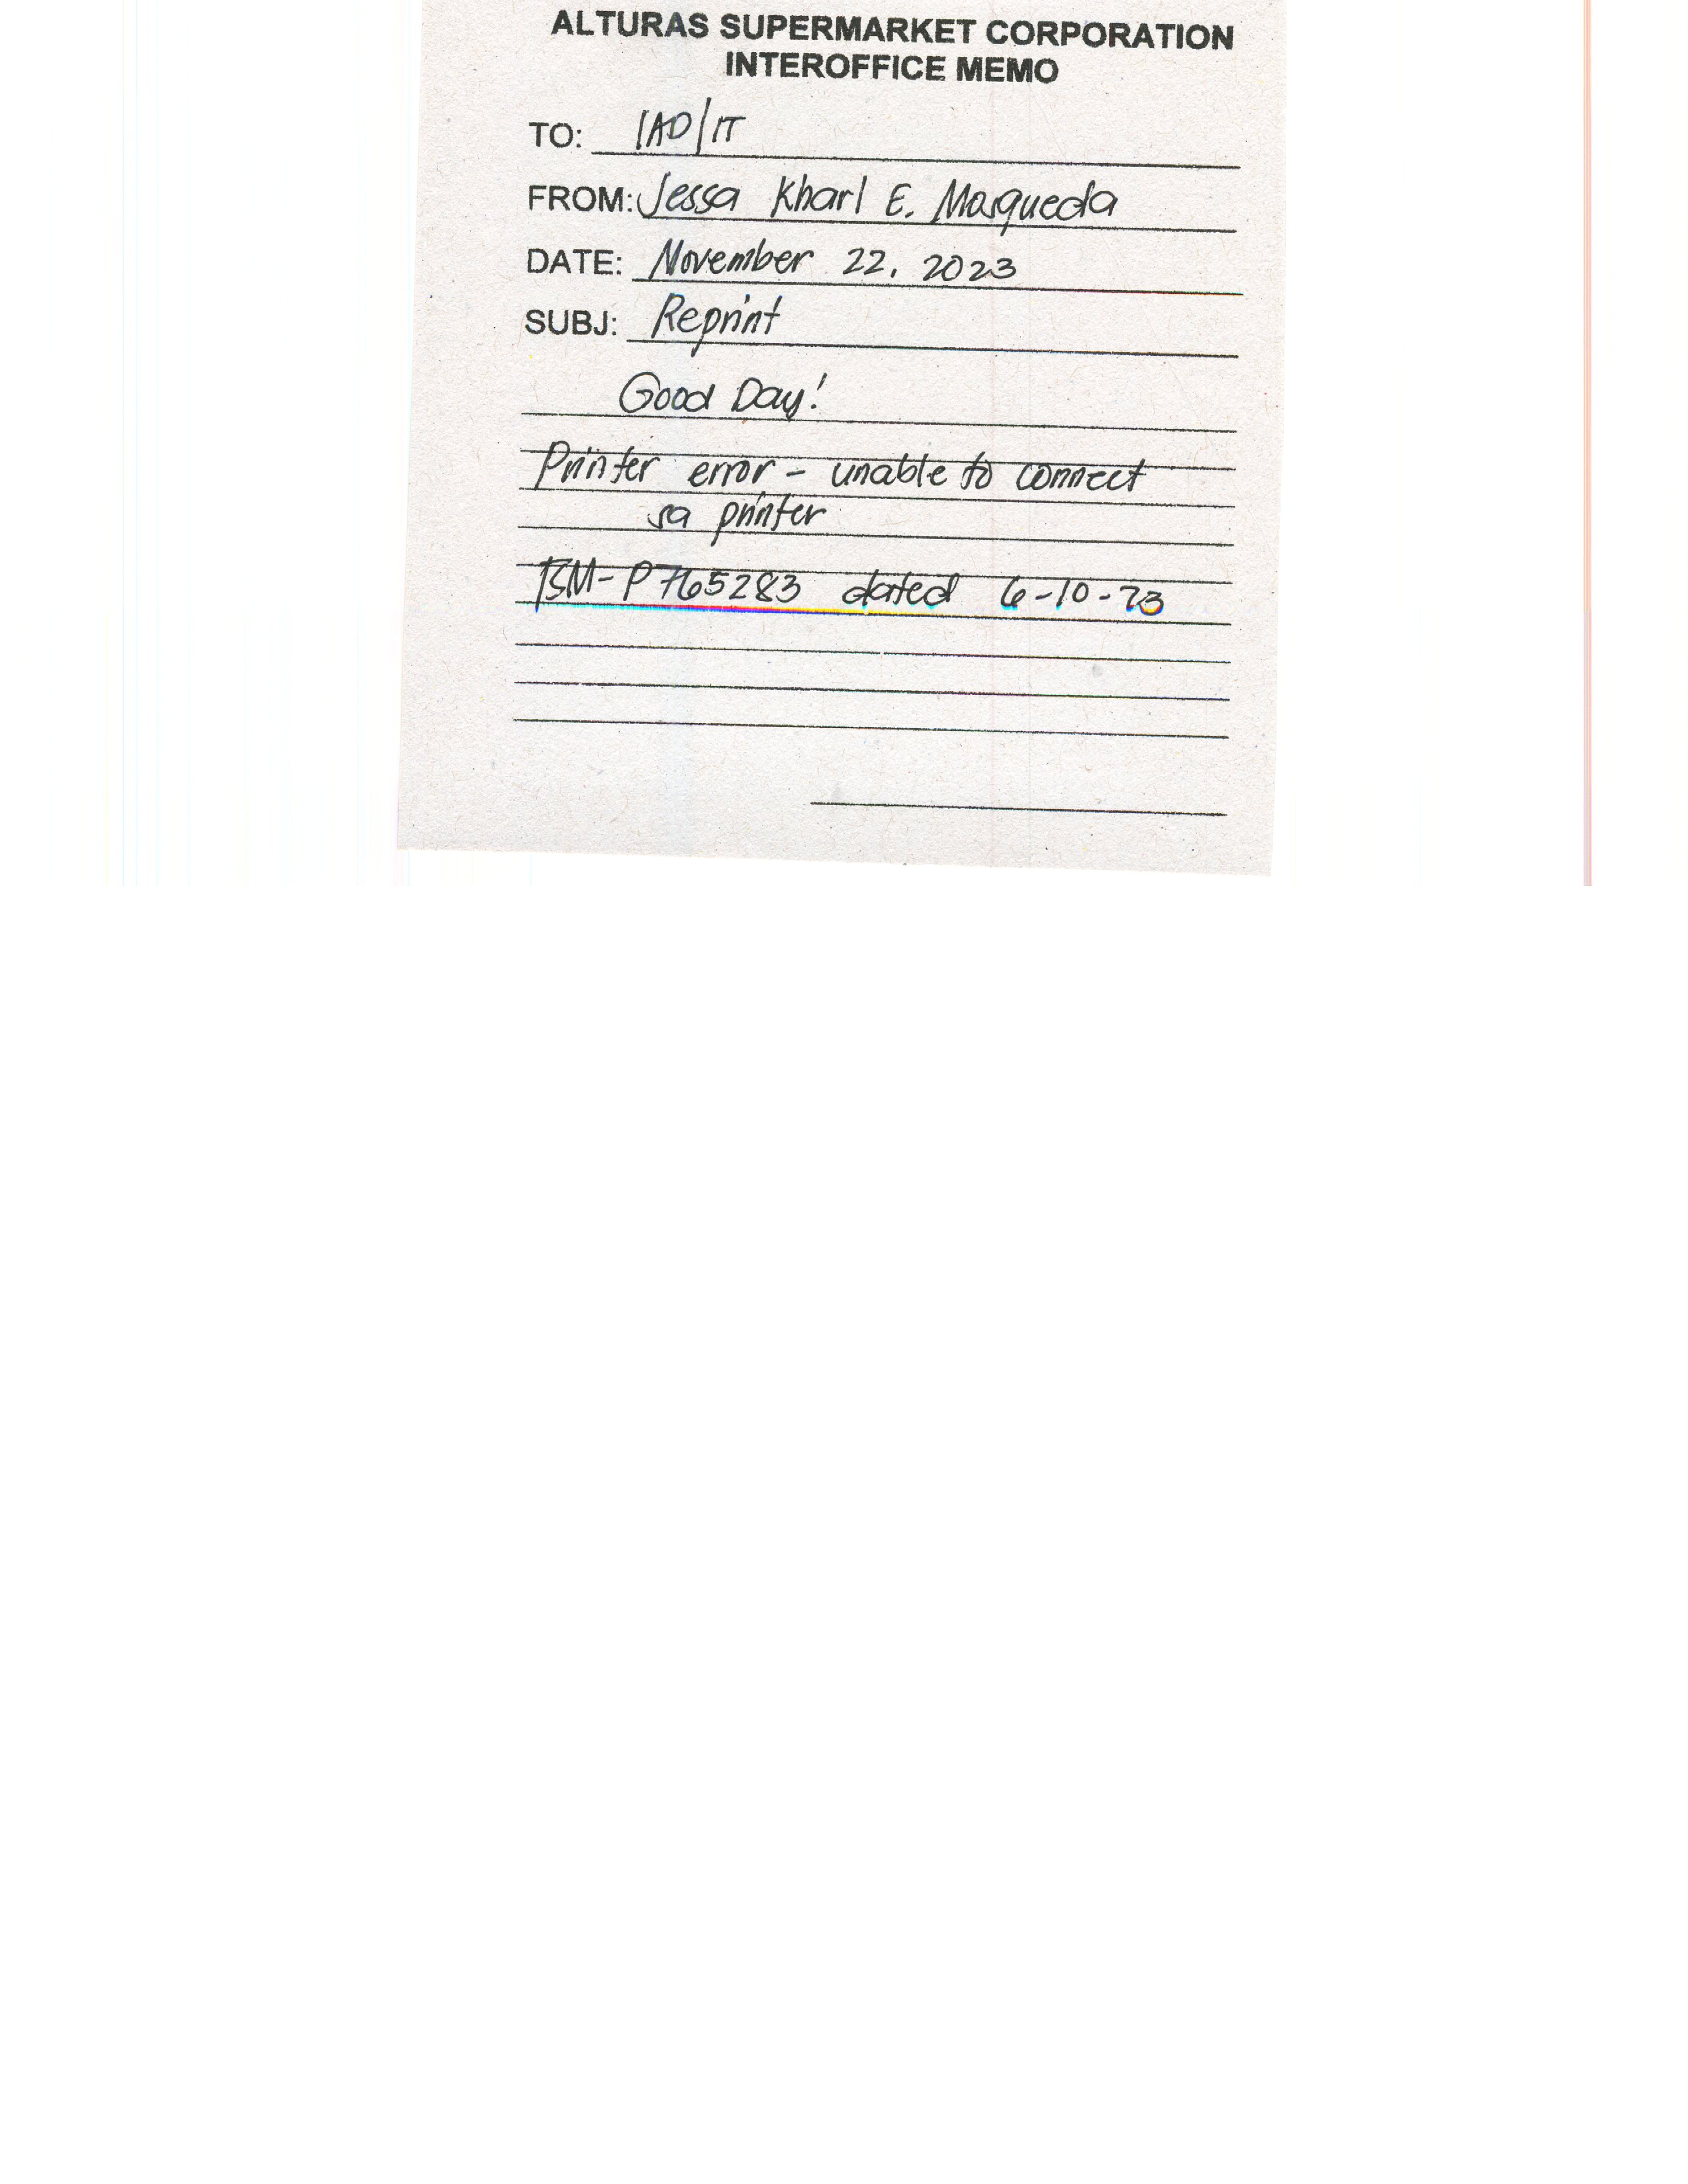 ALTURAS SUPERMARKET CORPORATION
INTEROFFICE MEMO
TO: IAD/IT
FROM: Jessa Kharl E. Masqueda
DATE: November 22, 2023
SUBJ: Reprint
Good Day!
Printer error - unable to connect
sa printer
P765283 dated 6-10-23